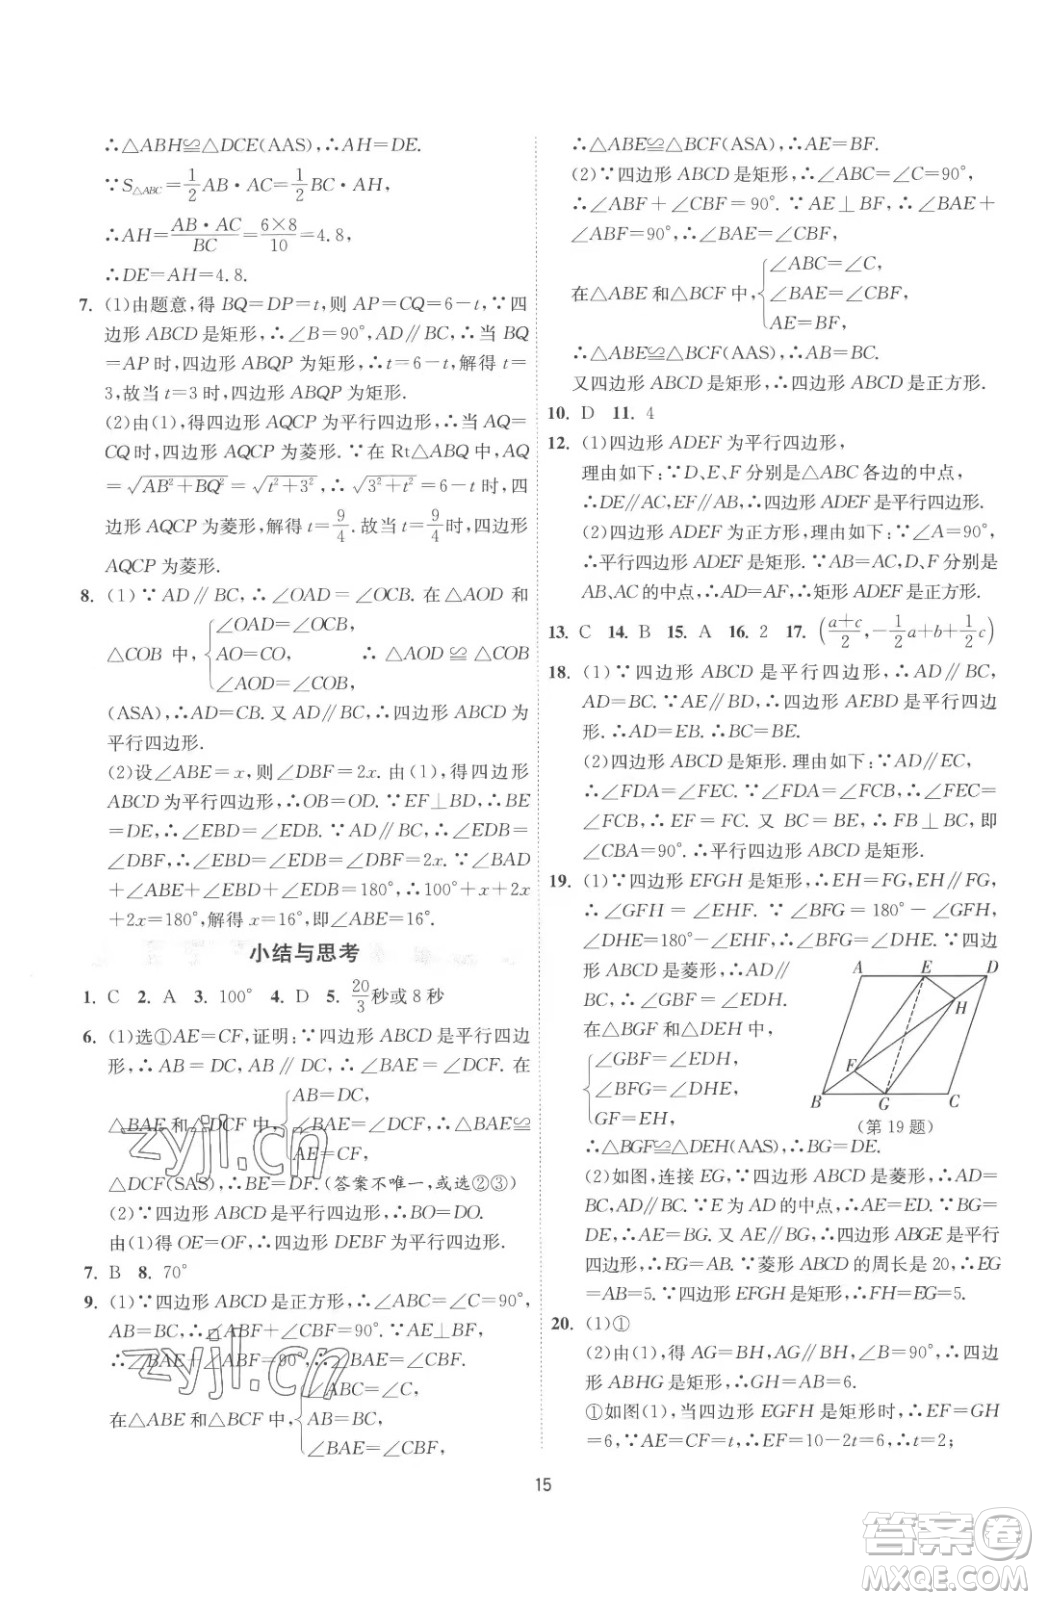 ∴△ABH≌△DCE(AAS),∴AH=DE.
∵S△ABC=1/2AB·AC=1/2BC·AH,
∴AH=AB·AC/BC=6×8/10=4.8,
∴DE=AH=4.8.
7. (1)由题意,得 BQ=DP=t,则 AP=CQ=6-t,∵四
边形 ABCD 是矩形,∴∠B=90°,AD∥BC,∴当 BQ
=AP 时,四边形 ABQP 为矩形,∴t=6-t,解得 t=
3,故当 t=3 时,四边形 ABQP 为矩形.
(2)由(1),得四边形 AQCP 为平行四边形,∴当 AQ=
CQ 时,四边形 AQCP 为菱形.∵在 Rt△ABQ 中,AQ
=√(AB²+BQ²)=√(t²+3²),∴√(3²+t²)=6-t 时,四
边形 AQCP 为菱形,解得 t=9/4.故当 t=9/4时,四边形
AQCP 为菱形.
8. (1)∵AD∥BC,∴∠OAD=∠OCB. 在△AOD 和
∠OAD=∠OCB,
△COB 中,{AO=CO, ∴△AOD≌△COB
∠AOD=∠COB,
(ASA),∴AD=CB. 又 AD∥BC,∴四边形 ABCD 为
平行四边形.
(2)设∠ABE=x,则∠DBF=2x. 由(1),得四边形
ABCD 为平行四边形,∴OB=OD.∵EF⊥BD,∴BE
=DE,∴∠EBD=∠EDB.∵AD∥BC,∴∠EDB=
∠DBF,∴∠EBD=∠EDB=∠DBF=2x.∵∠BAD
+∠ABE+∠EBD+∠EDB=180°,∴100°+x+2x
+2x=180°,解得 x=16°,即∠ABE=16°.
小结与思考
1. C 2. A 3. 100° 4. D 5. 20/3秒或 8 秒
6. (1)选①AE=CF,证明:∵四边形 ABCD 是平行四边
形,∴AB=DC,AB∥DC,∴∠BAE=∠DCF. 在
AB=DC,
△BAE 和△DCF 中,{∠BAE=∠DCF,∴△BAE≌
AE=CF,
△DCF(SAS),∴BE=DF.(答案不唯一,或选②③)
(2)∵四边形 ABCD 是平行四边形,∴BO=DO.
由(1)得 OE=OF,∴四边形 DEBF 是平行四边形.
7. B 8. 70°
9. (1)∵四边形 ABCD 是正方形,∴∠ABC=∠C=90°,
AB=BC,∴∠ABF+∠CBF=90°.∵AE⊥BF,
∴∠BAE+∠ABF=90°,∴∠BAE=∠CBF,
∠ABC=∠C,
在△ABE 和△BCF 中,{AB=BC,
∠BAE=∠CBF,
∴△ABE≌△BCF(ASA),∴AE=BF.
(2)∵四边形 ABCD 是矩形,∴∠ABC=∠C=90°,
∴∠ABF+∠CBF=90°.∵AE⊥BF,∴∠BAE+
∠ABF=90°,∴∠BAE=∠CBF,
∠ABC=∠C,
在△ABE 和△BCF 中,{∠BAE=∠CBF,
AE=BF,
∴△ABE≌△BCF(AAS),∴AB=BC.
又四边形 ABCD 是矩形,∴四边形 ABCD 是正方形.
10. D 11. 4
12. (1)四边形 ADEF 为平行四边形,
理由如下:∵D、E、F 分别是△ABC 各边的中点,
∴DE∥AC,EF∥AB,∴四边形 ADEF 是平行四边形.
(2)四边形 ADEF 为正方形,理由如下:∵∠A=90°,
∴平行四边形 ADEF 是矩形.∵AB=AC,D、F 分别是
AB、AC 的中点,∴AD=AF,∴矩形 ADEF 是正方形.
13. C 14. B 15. A 16. 2 17. ((a+c)/2,-1/2a+b+1/2c)
18. (1)∵四边形 ABCD 是平行四边形,∴AD∥BC,
AD=BC.∵AE∥BD,∴四边形 AEBD 是平行四边
形.∴AD=EB.∴BC=BE.
(2)四边形 ABCD 是矩形.理由如下:∵AD∥EC,
∴∠FDA=∠FCB.∵∠FDA=∠FEC,∴∠FEC=
∠FCB,∴EF=FC. 又 BC=BE,∴FB⊥BC,即
∠CBA=90°.∴平行四边形 ABCD 是矩形.
19. (1)∵四边形 EFGH 是矩形,∴EH=FG,EH∥FG,
∴∠GFH=∠EHF.∵∠BFG=180°-∠GFH,
∠DHE=180°-∠EHF,∴∠BFG=∠DHE.∵四边
形 ABCD 是菱形,∴AD∥
BC,∴∠GBF=∠EDH.
在△BGF 和△DEH 中,
∠GBF=∠EDH,
{∠BFG=∠DHE,
GF=EH,
A E D H F B G C
(第 19 题)
∴△BGF≌△DEH(AAS),∴BG=DE.
(2)如图,连接 EG,∵四边形 ABCD 是菱形,∴AD=
BC,AD∥BC.∵E 为 AD 的中点,∴AE=ED.∵BG=
DE,∴AE=BG. 又 AE∥BG,∴四边形 ABGE 是平行
四边形,∴EG=AB.∵菱形 ABCD 的周长是 20,∴EG
=AB=5.∵四边形 EFGH 是矩形,∴FH=EG=5.
20. (1)①
(2)由(1),得 AG=BH,AG∥BH,∠B=90°,∴四边
形 ABHG 是矩形,∴GH=AB=6.
①如图(1),当四边形 EGFH 是矩形时,∴EF=GH
=6,∵AE=CF=t,∴EF=10-2t=6,∴t=2;
15
zyjl.cn
zyjl.cn
答案卷
MXQE.COM